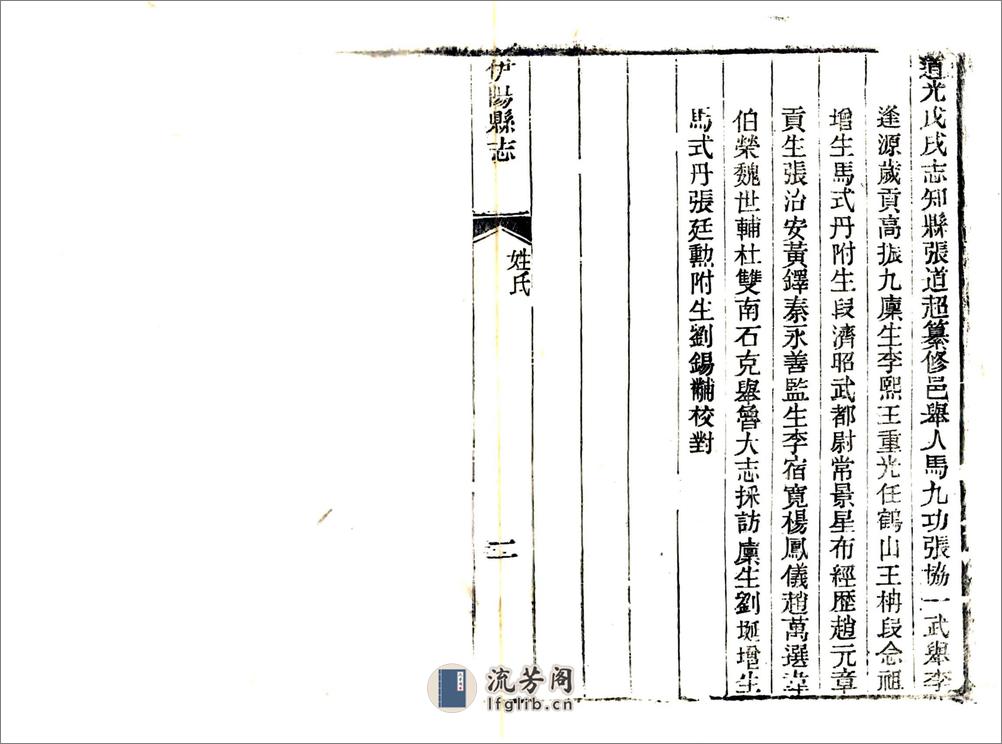 道光戊戌志知縣張道超纂修邑舉人馬九功張協一武舉李
逢源歲貢高振九廩生李熙王重光任鶴山王枏段念祖
增生馬式丹附生段濟昭武都尉常景星布經歷趙元章
貢生張治安黃鐸秦永善監生李宿寬楊鳳儀趙萬選韋
伯榮魏世輔杜雙南石克舉魯大志採訪廩生劉埏增生
馬式丹張廷勳附生劉錫黼校對
伊陽縣志
姓氏
二
流芳阁
lfglib.cn